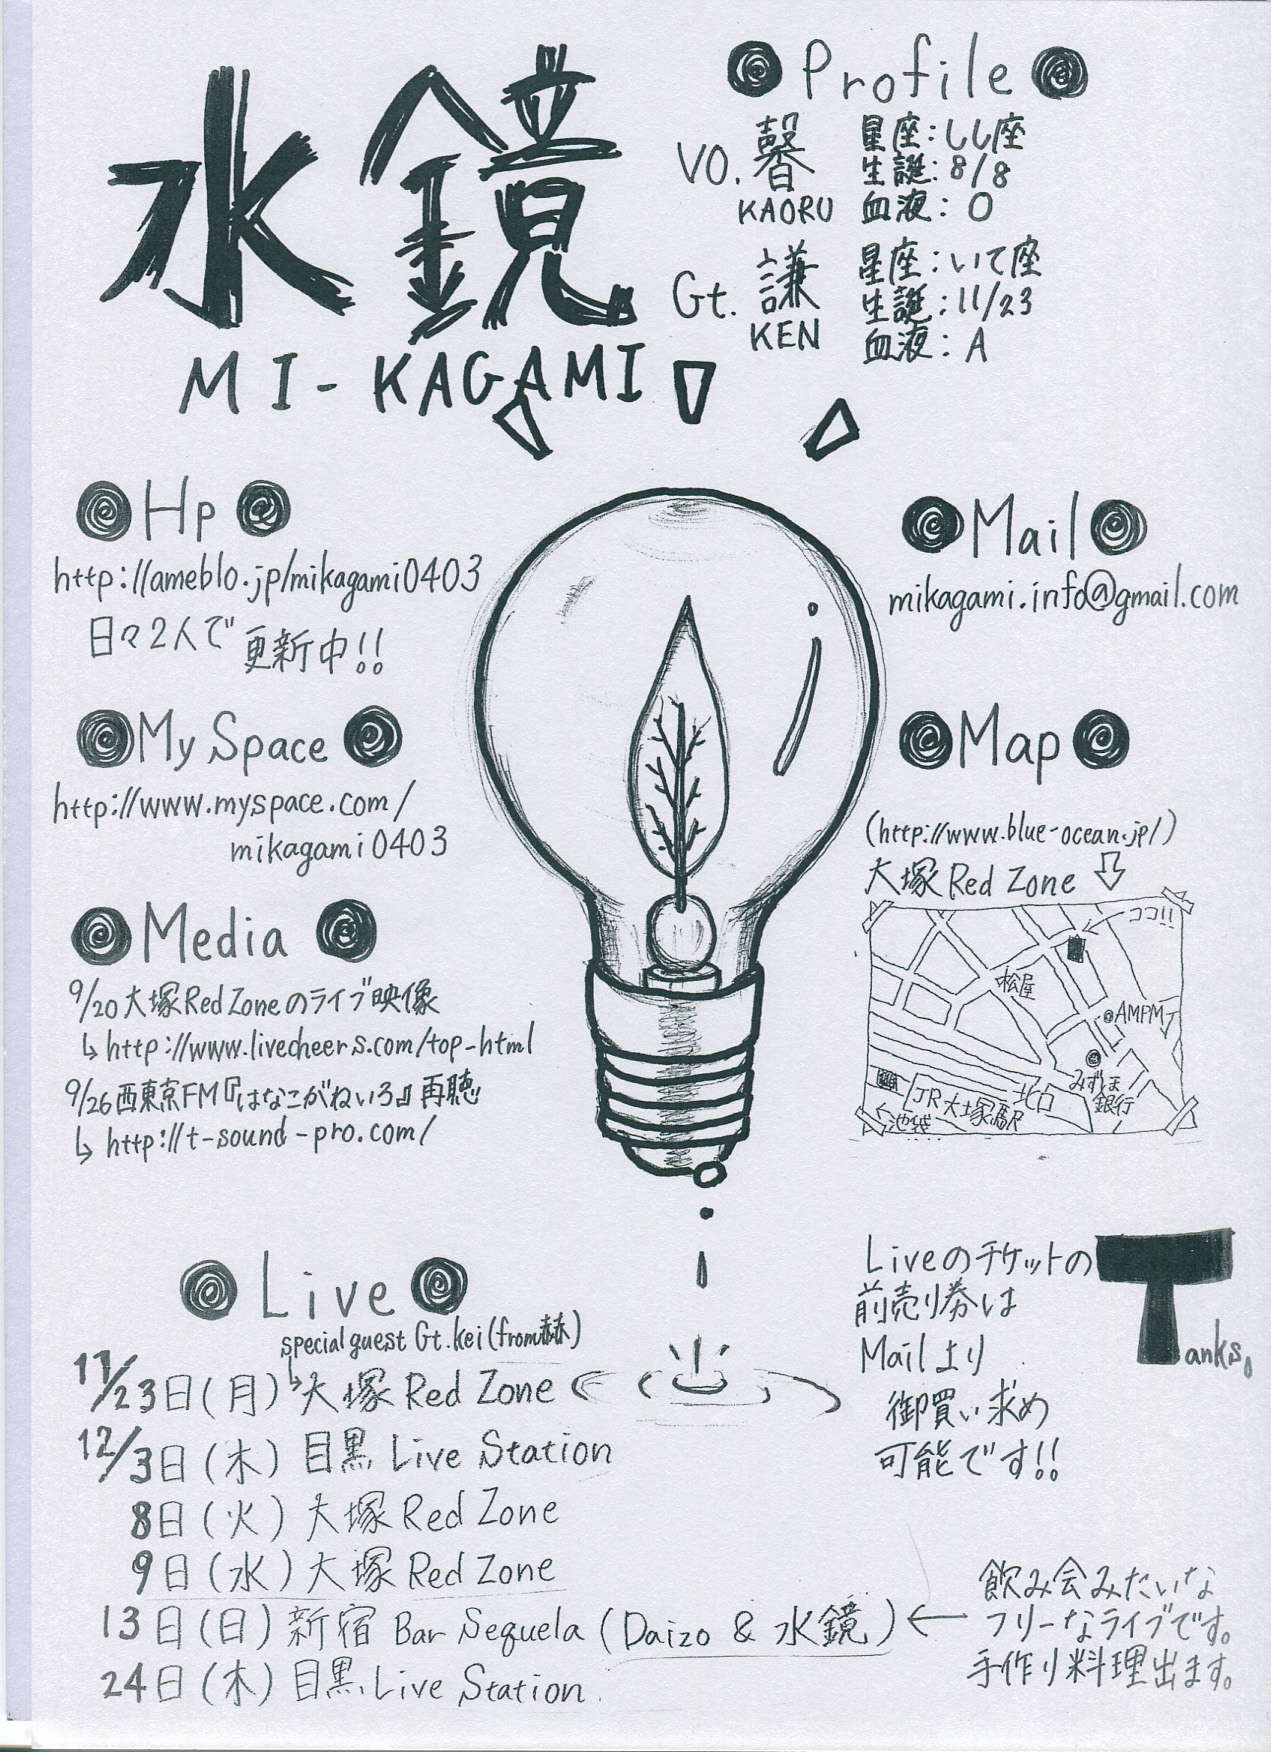 水鏡
MI-KAGAMI
Profile
VO. 馨 KAORU
星座:しし座
生誕:8/8
血液:O
Gt. 謙 KEN
星座:いて座
生誕:11/23
血液:A
Hp
http://ameblo.jp/mikagami0403
日々2人で更新中!!
My Space
http://www.myspace.com/
mikagami0403
Media
9/20大塚Red Zoneのライブ映像
↳http://www.livecheers.com/top-html
9/26西東京FM『はなこがねいろ』再聴
↳http://t-sound-pro.com/
Mail
mikagami.info@gmail.com
Map
(http://www.blue-ocean.jp/)
大塚Red Zone
ココ!!
松屋
AMPM
みずほ
銀行
北口
JR大塚駅
←池袋
Live
special guest Gt.kei(from赫)
11/23日(月)大塚Red Zone
12/3日(木)目黒Live Station
8日(火)大塚Red Zone
9日(水)大塚Red Zone
13日(日)新宿Bar Sequela(Daizo & 水鏡)←
24日(木)目黒Live Station
Liveのチケットの
前売り券は
Mailより
御買い求め
可能です!!
Tanks。
飲み会みたいな
フリーなライブです。
手作り料理出ます。